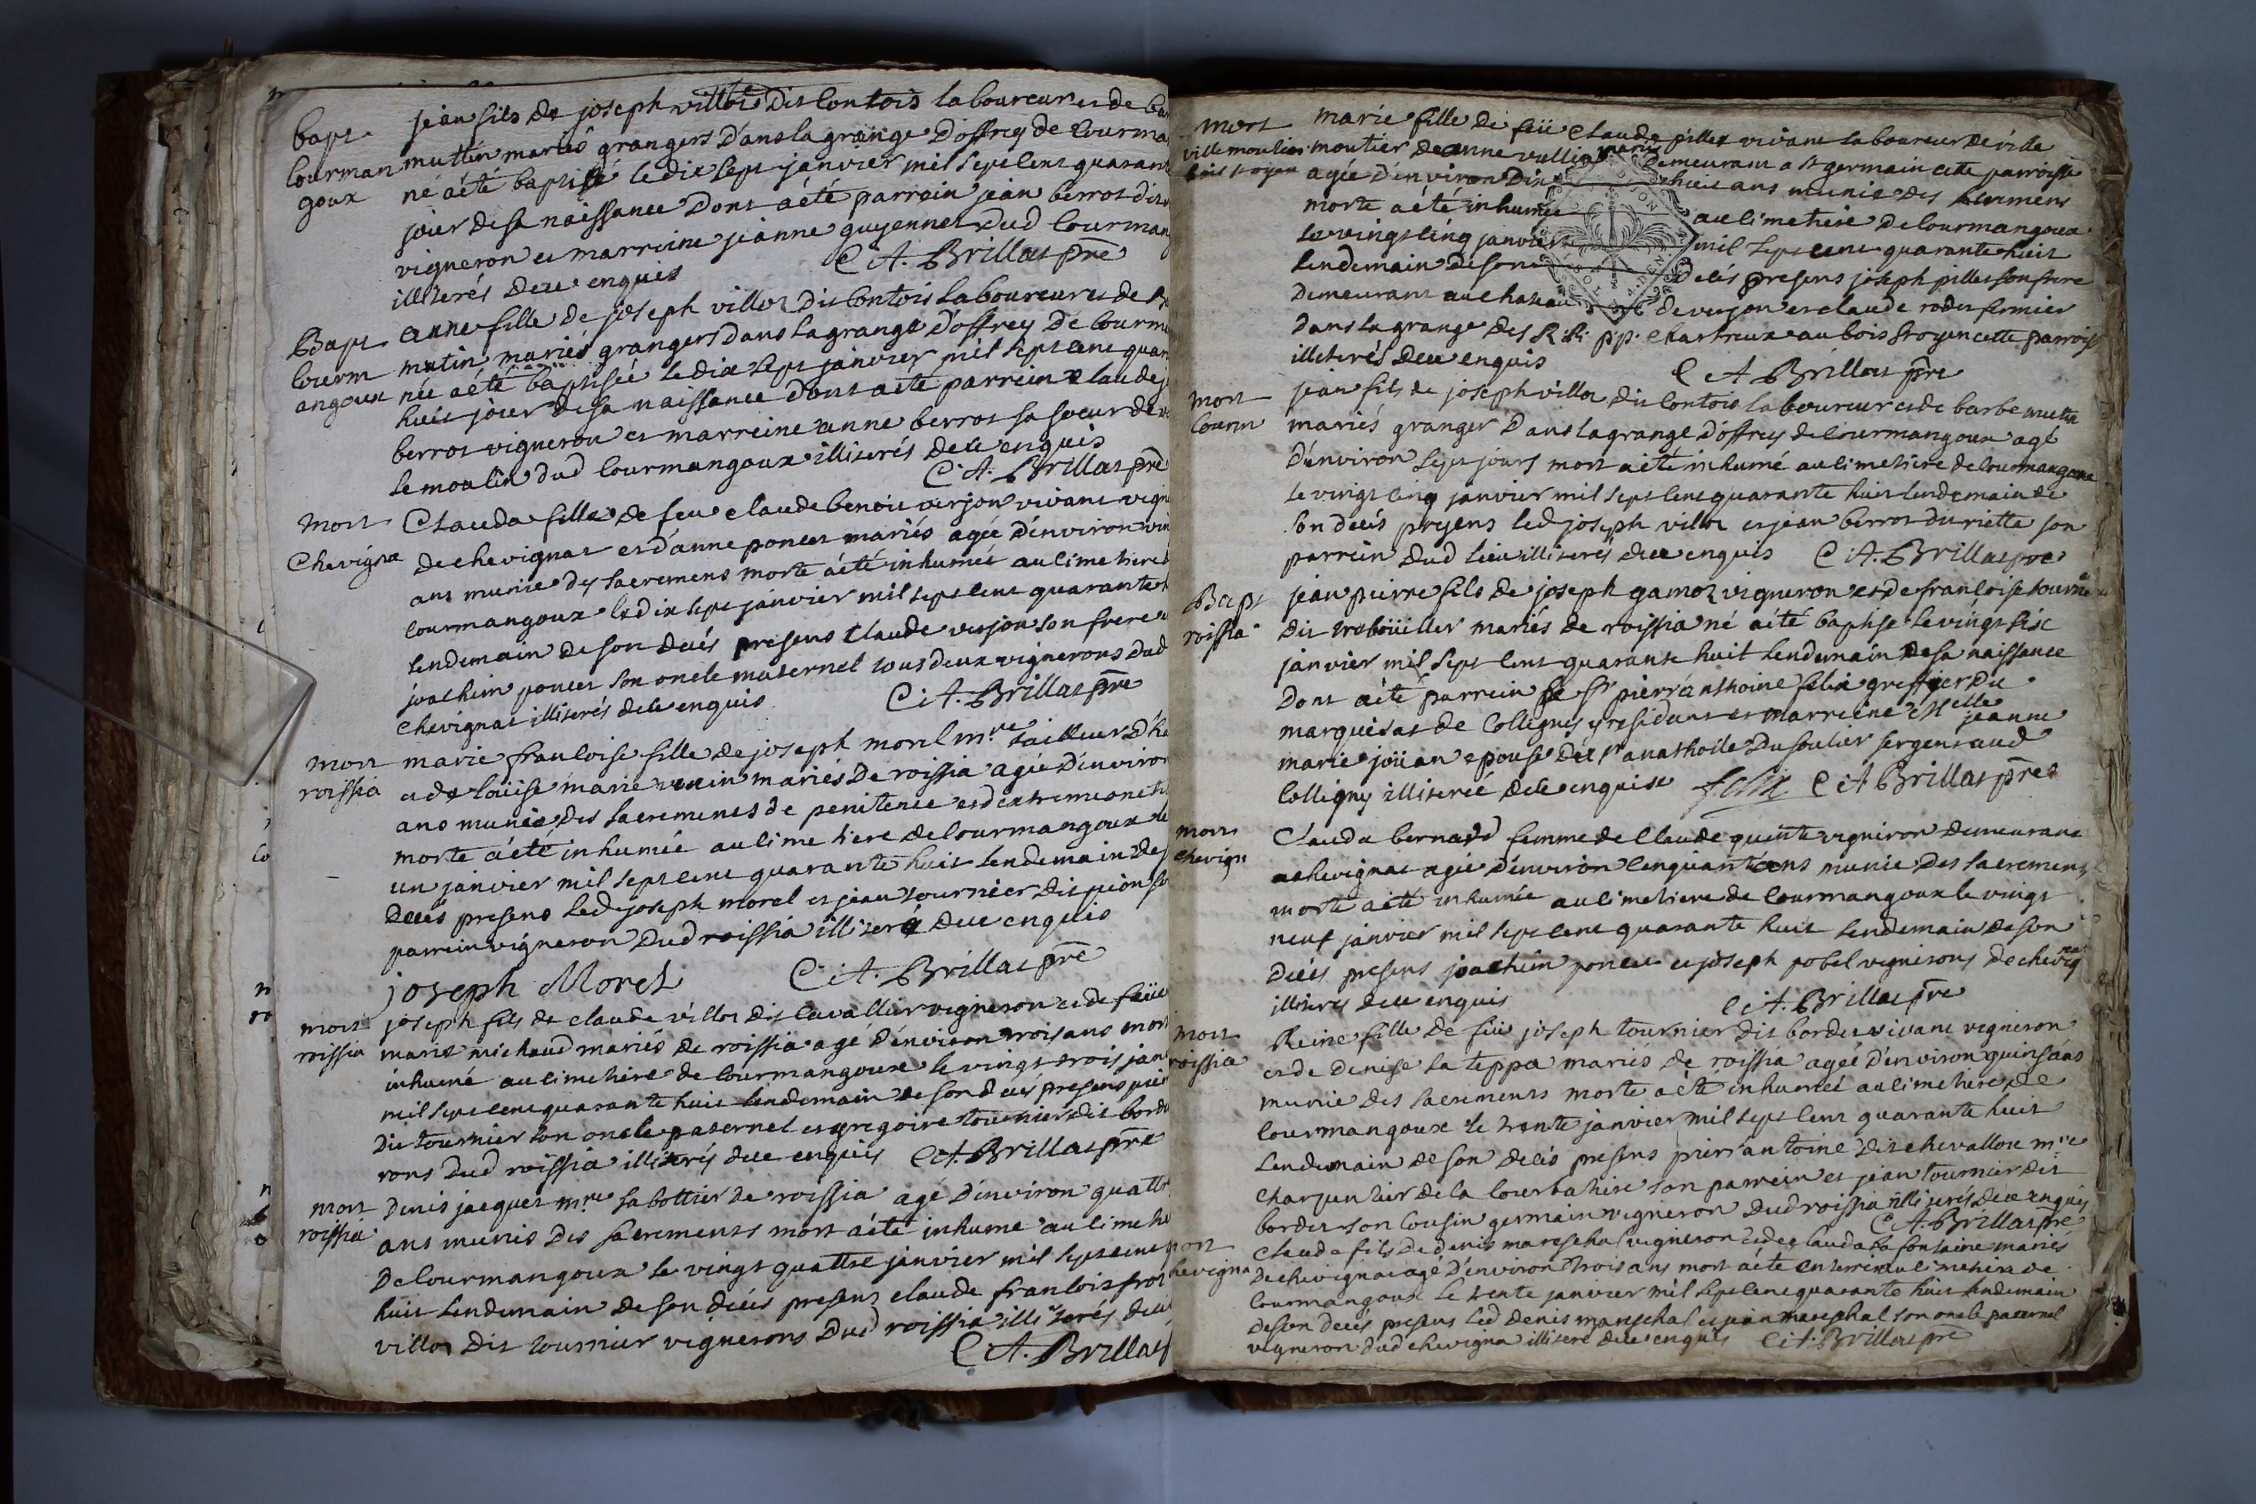 bapt
Courman
goux
jean fils de joseph villot dit Contois laboureur et de bar
muttin mariés grangers dans la grange d'offrey de Courma
né a été baptisé le dix sept janvier mil sept cent quarant
jour de sa naissance dont a été parrain jean berrot dit
vigneron et marreine jeanne guyennet dud Courman
illiterés de ce enquis C. A. Brillat pre
Bapt
Courm
angoux
anne fille de joseph villot dit Contois laboureur et de
mutin mariés grangers dans la grange d'offrey de Courm
née a été baptisée le dix sept janvier mil sept cent quar
huit jour de sa naissance dont a été parrein claude
berrot vigneron et marreine anne berrot sa soeur de
le moulin dud Courmangoux illiterés de ce enquis
C. A. Brillat pre
Mort
Chevigna
Clauda fille de feu claude benoit verjon vivant vign
de chevignat et d'anne poncet mariés agée d'environ vin
ans munie des sacremens morte a été inhumée au cimetiere
Courmangoux le dix sept janvier mil sept cent quarante
lendemain de son decés presens Claude verjon son frere
joachim poncet son oncle maternel tous deux vignerons dud
Chevignat illiterés de ce enquis C. A. Brillat pre
mort
roissia
marie francoise fille de joseph morel mre tailleur d'ha
et de louise marie mariés de roissia agée d'environ
ans munie des sacremens de penitence et d'extremeonct
morte a été inhumée au cimetiere de Courmangoux le
un janvier mil sept cent quarante huit lendemain de
decés presens led joseph morel et jean tournier dit pion
parrein vigneron dud roissia illiteré de ce enquis
joseph Morel C. A. Brillat pre
mort
roissia
joseph fils de claude villot dit Cavallier vigneron et de feüe
marie michaud mariés de roissia agé d'environ trois ans mort
inhumé au cimetiere de Courmangoux le vingt trois jan
mil sept cent quarante huit lendemain de son decés presens
dit tournier son oncle paternel et gregoire tournier dit bord
rons dud roissia illiterés de ce enquis C. A. Brillat pre
mort
roissia
Denis jacquet mre sabottier de roissia agé d'environ quatr
ans munis des sacrements mort a été inhumé au cimeti
de Courmangoux le vingt quattre janvier mil sept cent
huit lendemain de son decés presens claude francois
villot dit tournier vignerons dud roissia illiterés de ce
C. A. Brillat
mort
ville moutier
bois st oyen
marie fille de feü claude pillet vivant laboureur de ville
moutier de anne vullin mariés demeurant a st germain cette parroisse
agée d'environ huit ans munie des sacremens
morte a été inhumée au cimetiere de Courmangoux
le vingt cinq janvier mil sept cent quarante huit
lendemain de son decés presens joseph pillet son frere
demeurant au chateau de verjon et claude rodet fermier
dans la grange des R: R: p:p: chartreux au bois st oyen cette parrois
illiterés de ce enquis C A Brillat pre
mort
Courm
jean fils de joseph villot dit Contois laboureur et de barbe mutin
mariés granger dans la grange d'offrey de Courmangoux agé
d'environ sept jours mort a été inhumé au cimetiere de Courmangoux
le vingt cinq janvier mil sept cent quarante huit lendemain de
son decés presens led joseph villot et jean berrot duriette son
parrein dud lieu illiterés de ce enquis C. A. Brillat pre
Bapt
roissia
jean pierre fils de joseph gamoz vigneron et de francoise tournier
dit mariés de roissia né a été baptisé le vingt six
janvier mil sept cent quarante huit lendemain de sa naissance
dont a été parrein le sr pierre anthoine felix greffier du
marquisat de Colligny y residant et marreine Melle jeanne
marie joüan epouse du sr anathoile Dusoulier sergent aud
Colligny illiterée de ce enquise felix C A Brillat pre
mort
chevign
Clauda bernard femme de Claude quinte vigneron demeurant
a chevignat agée d'environ cinquante ans munie des sacremens
morte a été inhumée au cimetiere de Courmangoux le vingt
neuf janvier mil sept cent quarante huit lendemain de son
decés presens joachim poncet et joseph pobel vignerons de chevignat
illiterés de ce enquis C. A. Brillat pre
mort
roissia
Reine fille de feü joseph tournier dit bordet vivant vigneron
et de denise la teppa mariés de roissia agée d'environ quinse ans
munie des sacrements morte a été inhumée au cimetiere de
Courmangoux le trente janvier mil sept cent quarante huit
lendemain de son decés presens pierr'antoine dit chevallon mre
charpentier de la Courbatiere son parrein et jean tournier dit
bordet son cousin germain vigneron dud roissia illiterés de ce enquis
C. A. Brillat pre
mort
chevigna
Claude fils de denis mareschal vigneron et de clauda la fontaine mariés
de chevignat agé d'environ trois ans mort a été enterré au cimetiere de
Courmangoux le trente janvier mil sept cent quarante huit lendemain
de son decés presens led denis mareschal et jean mareschal son oncle paternel
vigneron dud chevigna illiteré de ce enquis C. A. Brillat pre